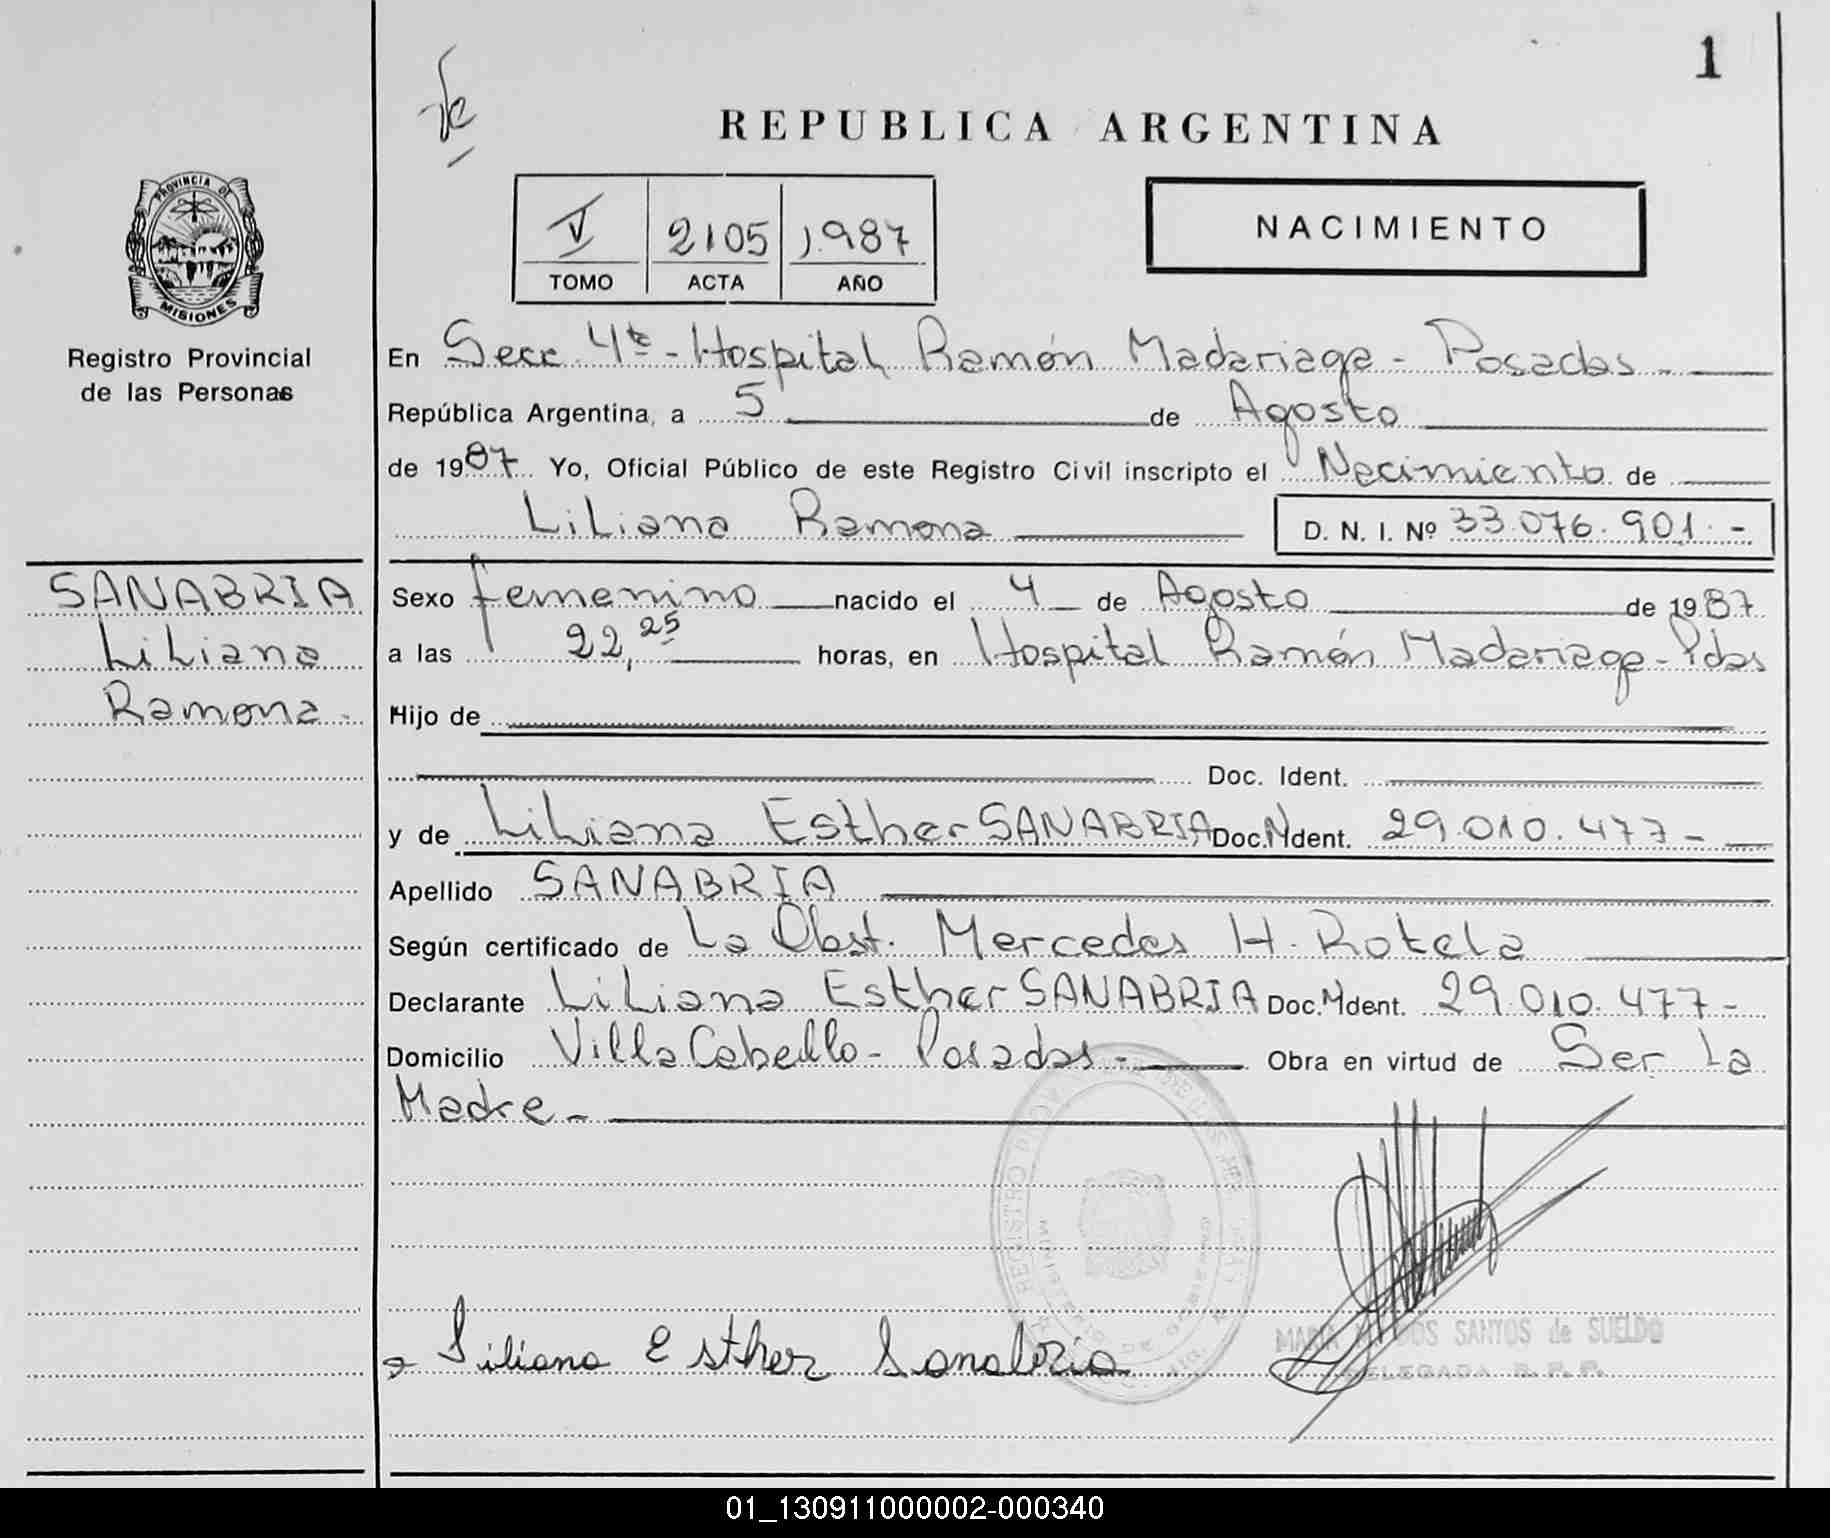 1
REPUBLICA ARGENTINA
PROVINCIA DE
MISIONES
Registro Provincial
de las Personas
V 2105 1.987
TOMO ACTA AÑO
NACIMIENTO
En Secc 4ta - Hospital Ramón Madariaga - Posadas.
República Argentina, a 5 de Agosto
de 1987 Yo, Oficial Público de este Registro Civil inscripto el Nacimiento de
Liliana Ramona D. N. I. Nº 33.076.901.-
SANABRIA
Liliana
Ramona.
Sexo femenino nacido el 4 de Agosto de 1987
a las 22,25 horas, en Hospital Ramón Madariaga - Pdas
Hijo de
Doc. Ident.
y de Liliana Esther SANABRIA Doc. Ident. 29.010.477-
Apellido SANABRIA
Según certificado de La Obst. Mercedes H. Rotela
Declarante Liliana Esther SANABRIA Doc. Ident. 29.010.477-
Domicilio Villa Cabello - Posadas - Obra en virtud de Ser La
Madre -
Liliana Esther Sanabria
MARIA DOS SANTOS de SUELDO
DELEGADA R.P.P.
01_130911000002-000340